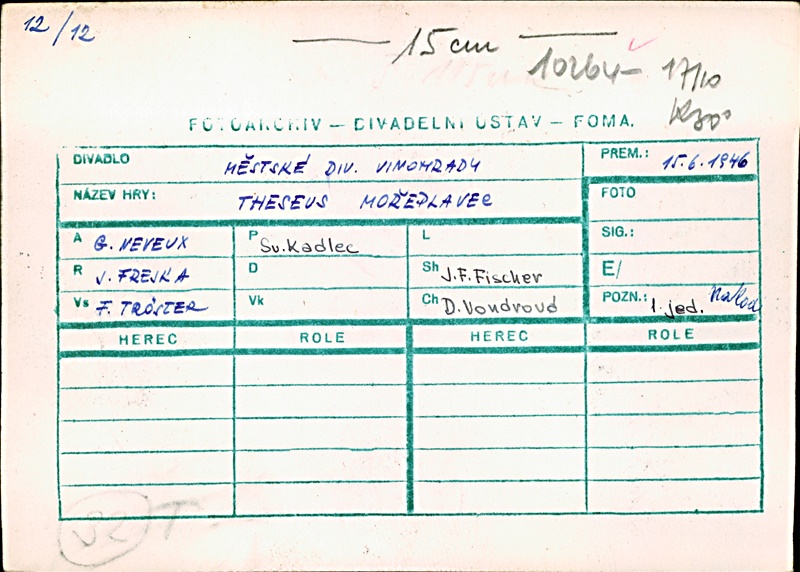 12/12
15 cm
10264- 17/10
FOTOARCHIV – DIVADELNÍ ÚSTAV – FOMA.
DIVADLO MĚSTSKÉ DIV. VINOHRADY PREM.: 15.6.1946
NÁZEV HRY: THESEUS MOŘEPLAVEC FOTO
A G. NEVEUX P Sv. Kadlec L SIG.:
R J. FREJKA D Sh J.F. Fischer E/
Vs F. TRÖSTER Vk Ch D. Vondrová POZN.: 1. jed.
HEREC ROLE HEREC ROLE